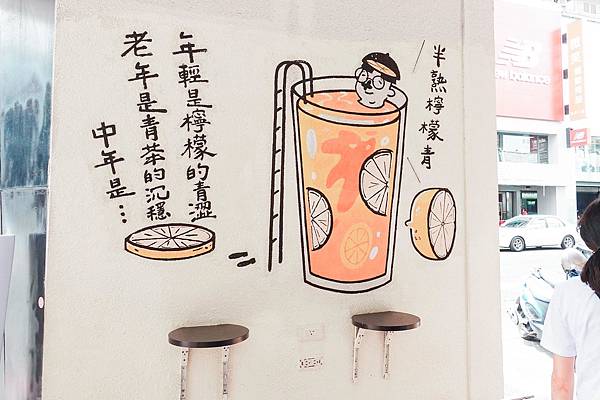 半熟檸檬青
年輕是檸檬的青澀
老年是青茶的沉穩
中年是…
new balance